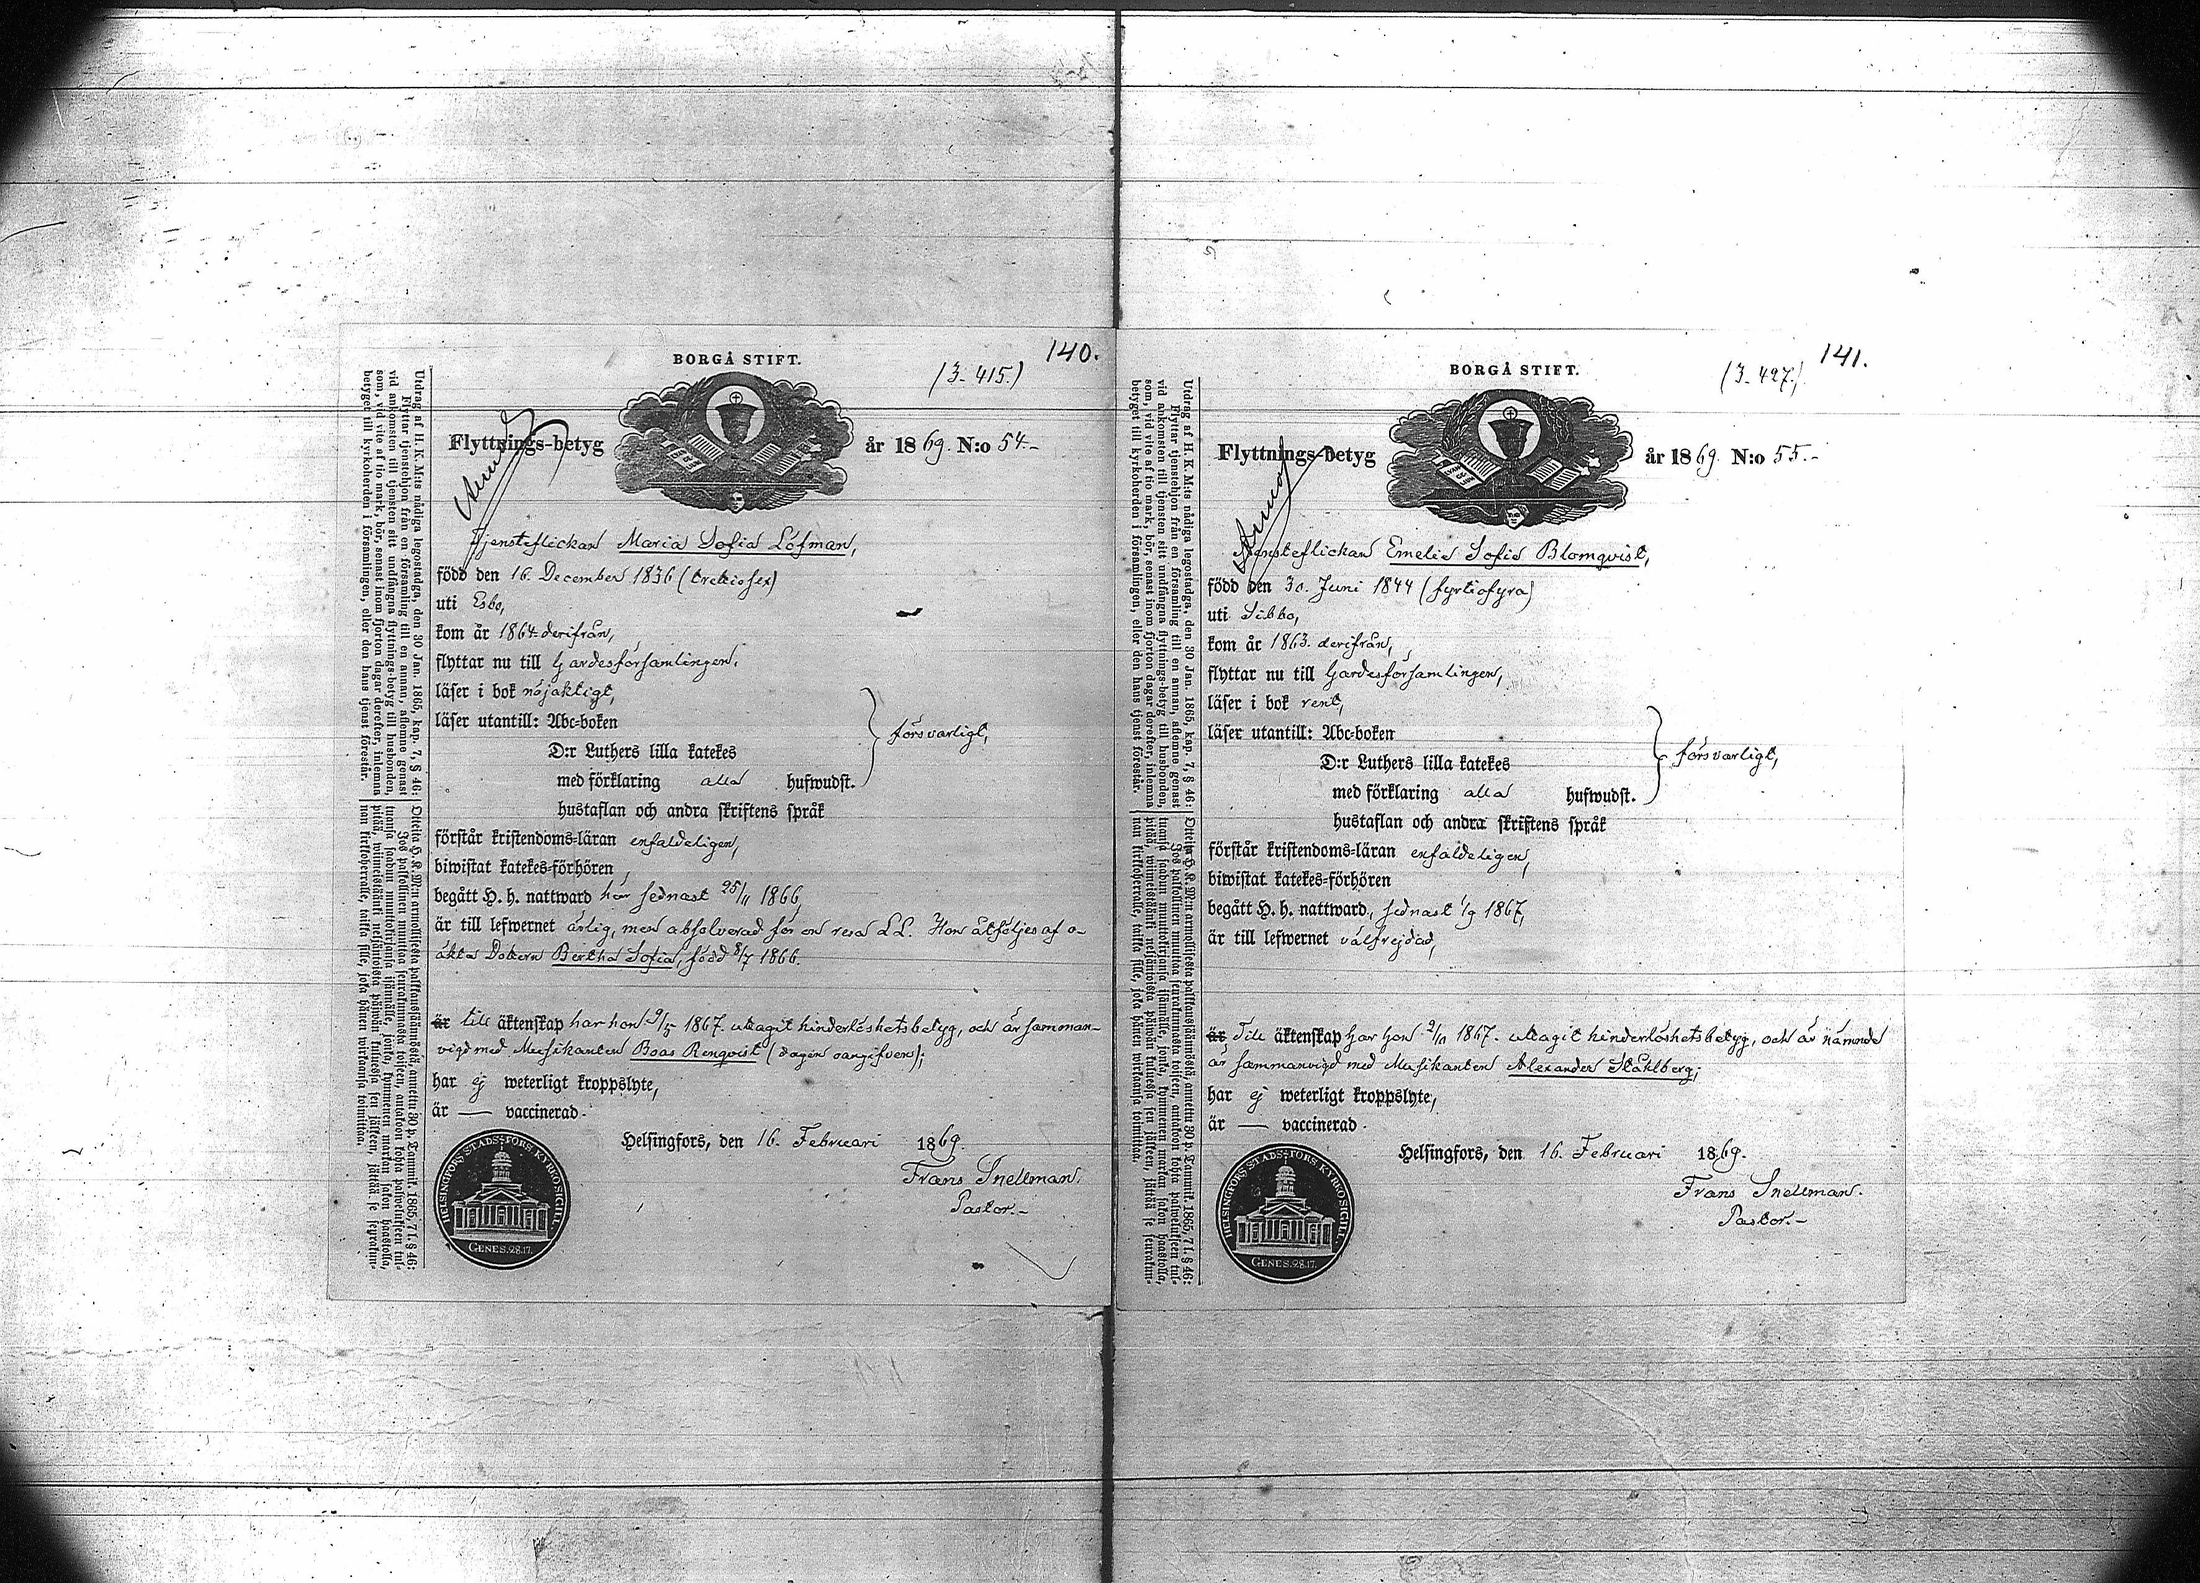 140.
BORGÅ STIFT.
(3-415.)
Flyttnings-betyg år 1869. N:o 54.-
Tjensteflickan Maria Sofia Löfman,
född den 16. December 1836 (trettiosex)
uti Esbo,
kom år 1864 derifrån,
flyttar nu till Gardesförsamlingen,
läser i bok nöjaktigt,
läser utantill: Abc-boken
D:r Luthers lilla katekes
med förklaring alla hufwudst.
hustaflan och andra skriftens språk
försvarligt,
förstår kristendoms-läran enfaldeligen,
biwistat katekes-förhören
begått H. h. nattward här sednast 25/11 1866,
är till lefwernet ärlig, men absolverad för en resa L.L. Hon åtföljes af o-
äkta Dottern Bertha Sofia, född 8/7 1866.
är till äktenskap har hon 9/5 1867. uttagit hinderlöshetsbetyg, och är samman-
vigd med Musikanten Boas Renqvist (dagen oangifven);
har ej weterligt kroppslyte,
är — vaccinerad.
Helsingfors, den 16. Februari 1869.
Frans Snellman.
Pastor.-
HELSINGFORS STADS-FÖRS. KYRKO SIGILL.
GENES. 28. 17.
Utdrag af H. K. M:ts nådiga legostadga, den 30 Jan. 1865, kap. 7, § 46:
Flyttar tjenstehjon från en församling till en annan, aflemne genast
vid ankomsten till tjensten sitt undfångna flyttnings-betyg till husbonden,
som, vid vite af tio mark, bör, senast inom fjorton dagar derefter, inlemna
betyget till kyrkoherden i församlingen, eller den hans tjenst förestår.
141.
BORGÅ STIFT.
(3-427.)
Flyttnings-betyg år 1869. N:o 55.-
Tjensteflickan Emelie Sofia Blomqvist,
född den 30. Juni 1844 (fyrtiofyra)
uti Sibbo,
kom år 1863. derifrån,
flyttar nu till Gardesförsamlingen,
läser i bok rent,
läser utantill: Abc-boken
D:r Luthers lilla katekes
med förklaring alla hufwudst.
hustaflan och andra skriftens språk
försvarligt,
förstår kristendoms-läran enfaldeligen,
biwistat katekes-förhören
begått H. h. nattward, sednast 1/9 1867,
är till lefwernet välfrejdad,
är Till äktenskap har hon 2/11 1867. uttagit hinderlöshetsbetyg, och är nämnde
är sammanvigd med Musikanten Alexander Ståhlberg;
har ej weterligt kroppslyte,
är — vaccinerad.
Helsingfors, den 16. Februari 1869.
Frans Snellman.
Pastor.-
HELSINGFORS STADS-FÖRS. KYRKO SIGILL.
GENES. 28. 17.
Utdrag af H. K. M:ts nådiga legostadga, den 30 Jan. 1865, kap. 7, § 46:
Flyttar tjenstehjon från en församling till en annan, aflemne genast
vid ankomsten till tjensten sitt undfångna flyttnings-betyg till husbonden,
som, vid vite af tio mark, bör, senast inom fjorton dagar derefter, inlemna
betyget till kyrkoherden i församlingen, eller den hans tjenst förestår.